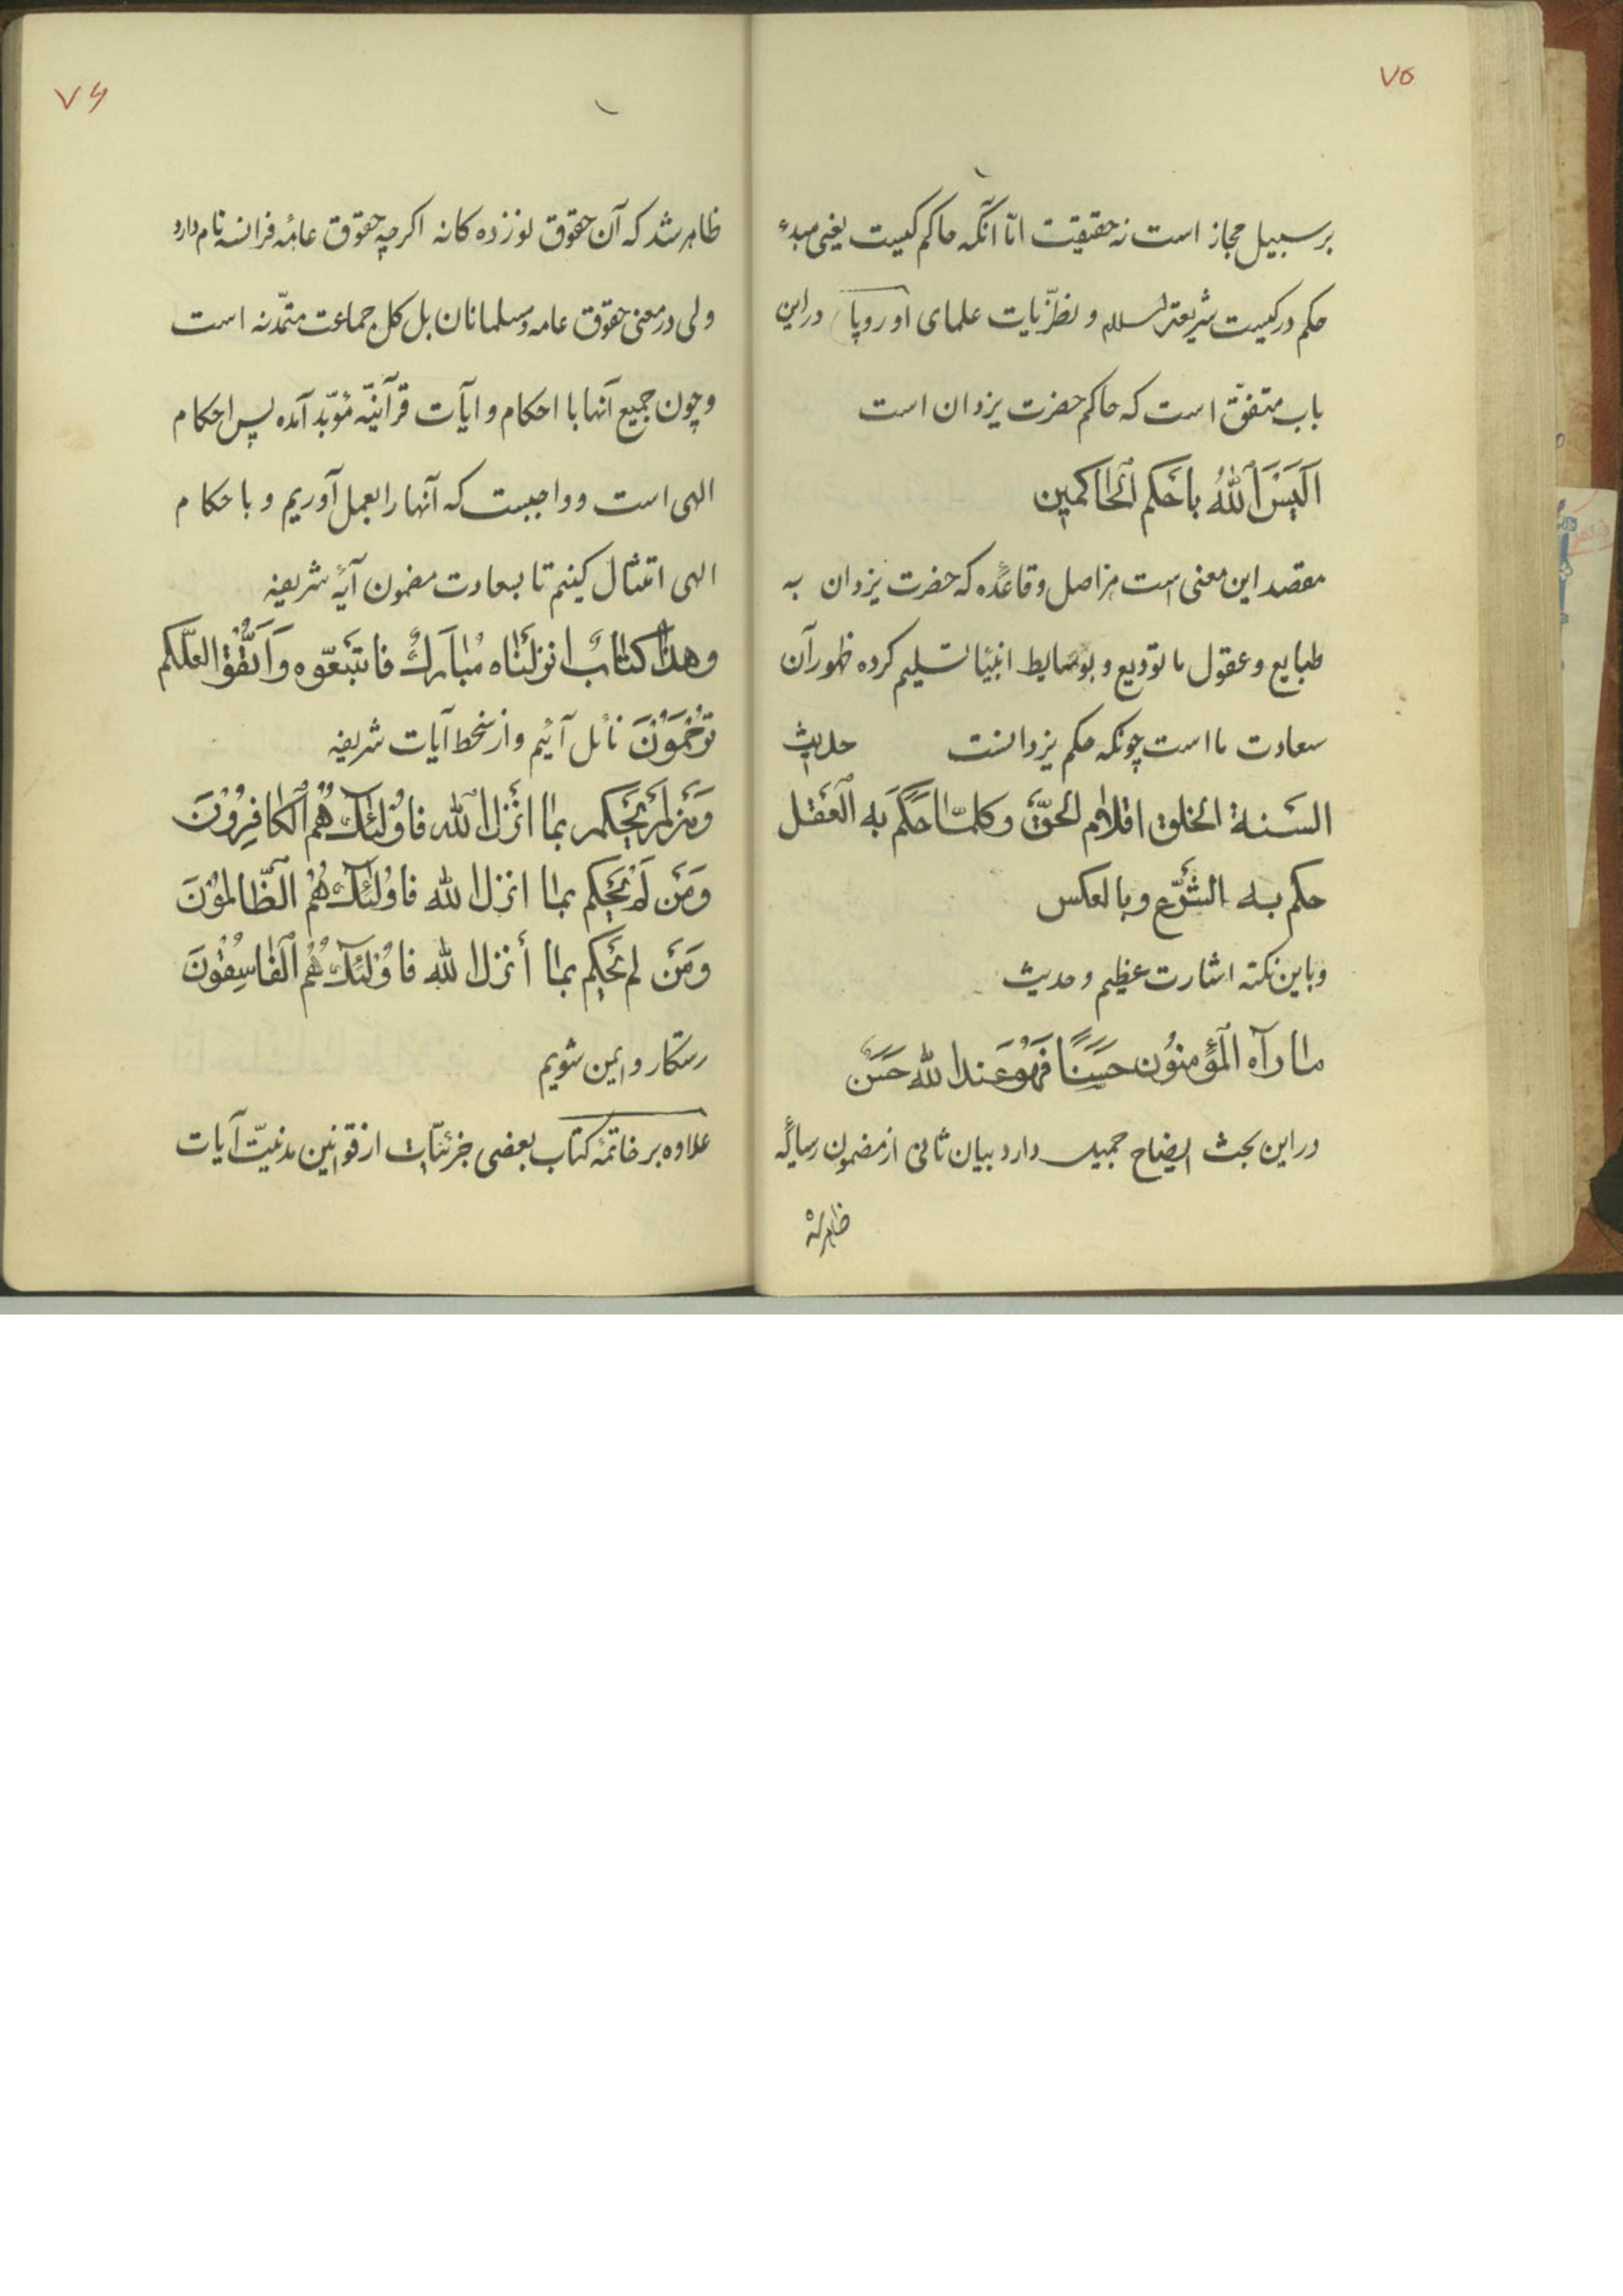 ۷۵
بر سبیل مجاز است نه حقیقت امّا آنکه حاکم کیست یعنی مبدء
حکم در کیست شریعت اسلام و نظرّیات علمای اوروپا در این
باب متفق است که حاکم حضرت یزدان است
اَلَیْسَ اللهُ باَحْکَم الْحٰاکمین
مقصد این معنی است هر اصل و قاعده که حضرت یزدان به
طبایع و عقول ما تودیع و بوسایط انبیا تسلیم کرده ظهور آن
سعادت ما است چونکه حکم یزدانست حدیث
السَنة الخلق اقلام الحقّ و کلمّا حَکَمَ بِه الْعَقل
حکم به الشّرع و بالعکس
و باین نکته اشارت عظیم و حدیث
ما رآه المؤمنون حَسَنًا فَهُوَ عند الله حَسَن
در این بحث ایضاح جمیل دارد بیان ثانی از مضمون رساله
ظاهر شد
۷۶
ظاهر شد که آن حقوق نوزده کانه اکرچه حقوق عامّه فرانسه نام دارد
ولی در معنی حقوق عامه مسلمانان بل کل جماعت متمدّنه است
و چون جمیع آنها با احکام و ایآت قرآنیّه مؤبّد آمده پس احکام
الهی است و واجبست که آنها را بعمل آوریم و باحکام
الهی امتثال کینم تا بسعادت مضمون آیۀ شریفه
وهذا کتابٌ انزلناه مُبارَكٌ فاتبعّوه وَاَتّقُوْا لعلّکم
تُرْحَمُوْنَ نائل آئیم و از سخط آیات شریفه
وَمَنْ لَمْ یَحْکم بما انْزلَ الله فاوُلئِكَ هُمُ الْکافِرُوْنَ
وَمَنْ لَمْ یَحْکم بما انزل الله فاوُلئِكَ هُمُ الظّالمُوْنَ
وَمَنْ لم یَحْکم بما أنزل الله فاوُلئِكَ هُمُ الْفاسِقُوْنَ
رستکار و ایمن شویم
علاوه بر خاتمۀ کتاب بعضی جزئیّات از قوانین مدنیّت آیات